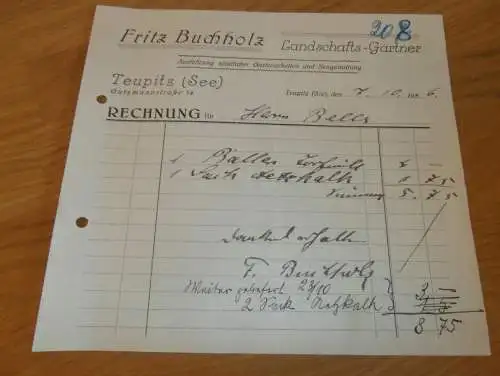 208
Fritz Buchholz
Landschafts-Gärtner
Ausführung sämtlicher Gartenarbeiten und Neugestaltung
Teupitz (See)
Gutzmannstraße 14
Teupitz (See), den 7. 10. 1936.
RECHNUNG für Herrn Bells
1 Ballen Torfmull 5 -
1 Sack Aetzkalk 0 75
Summa 5. 75
Dankend erhalten
F. Buchholz
Weiter geliefert 23/10
2 Sack Aetzkalk 3 -
8 75